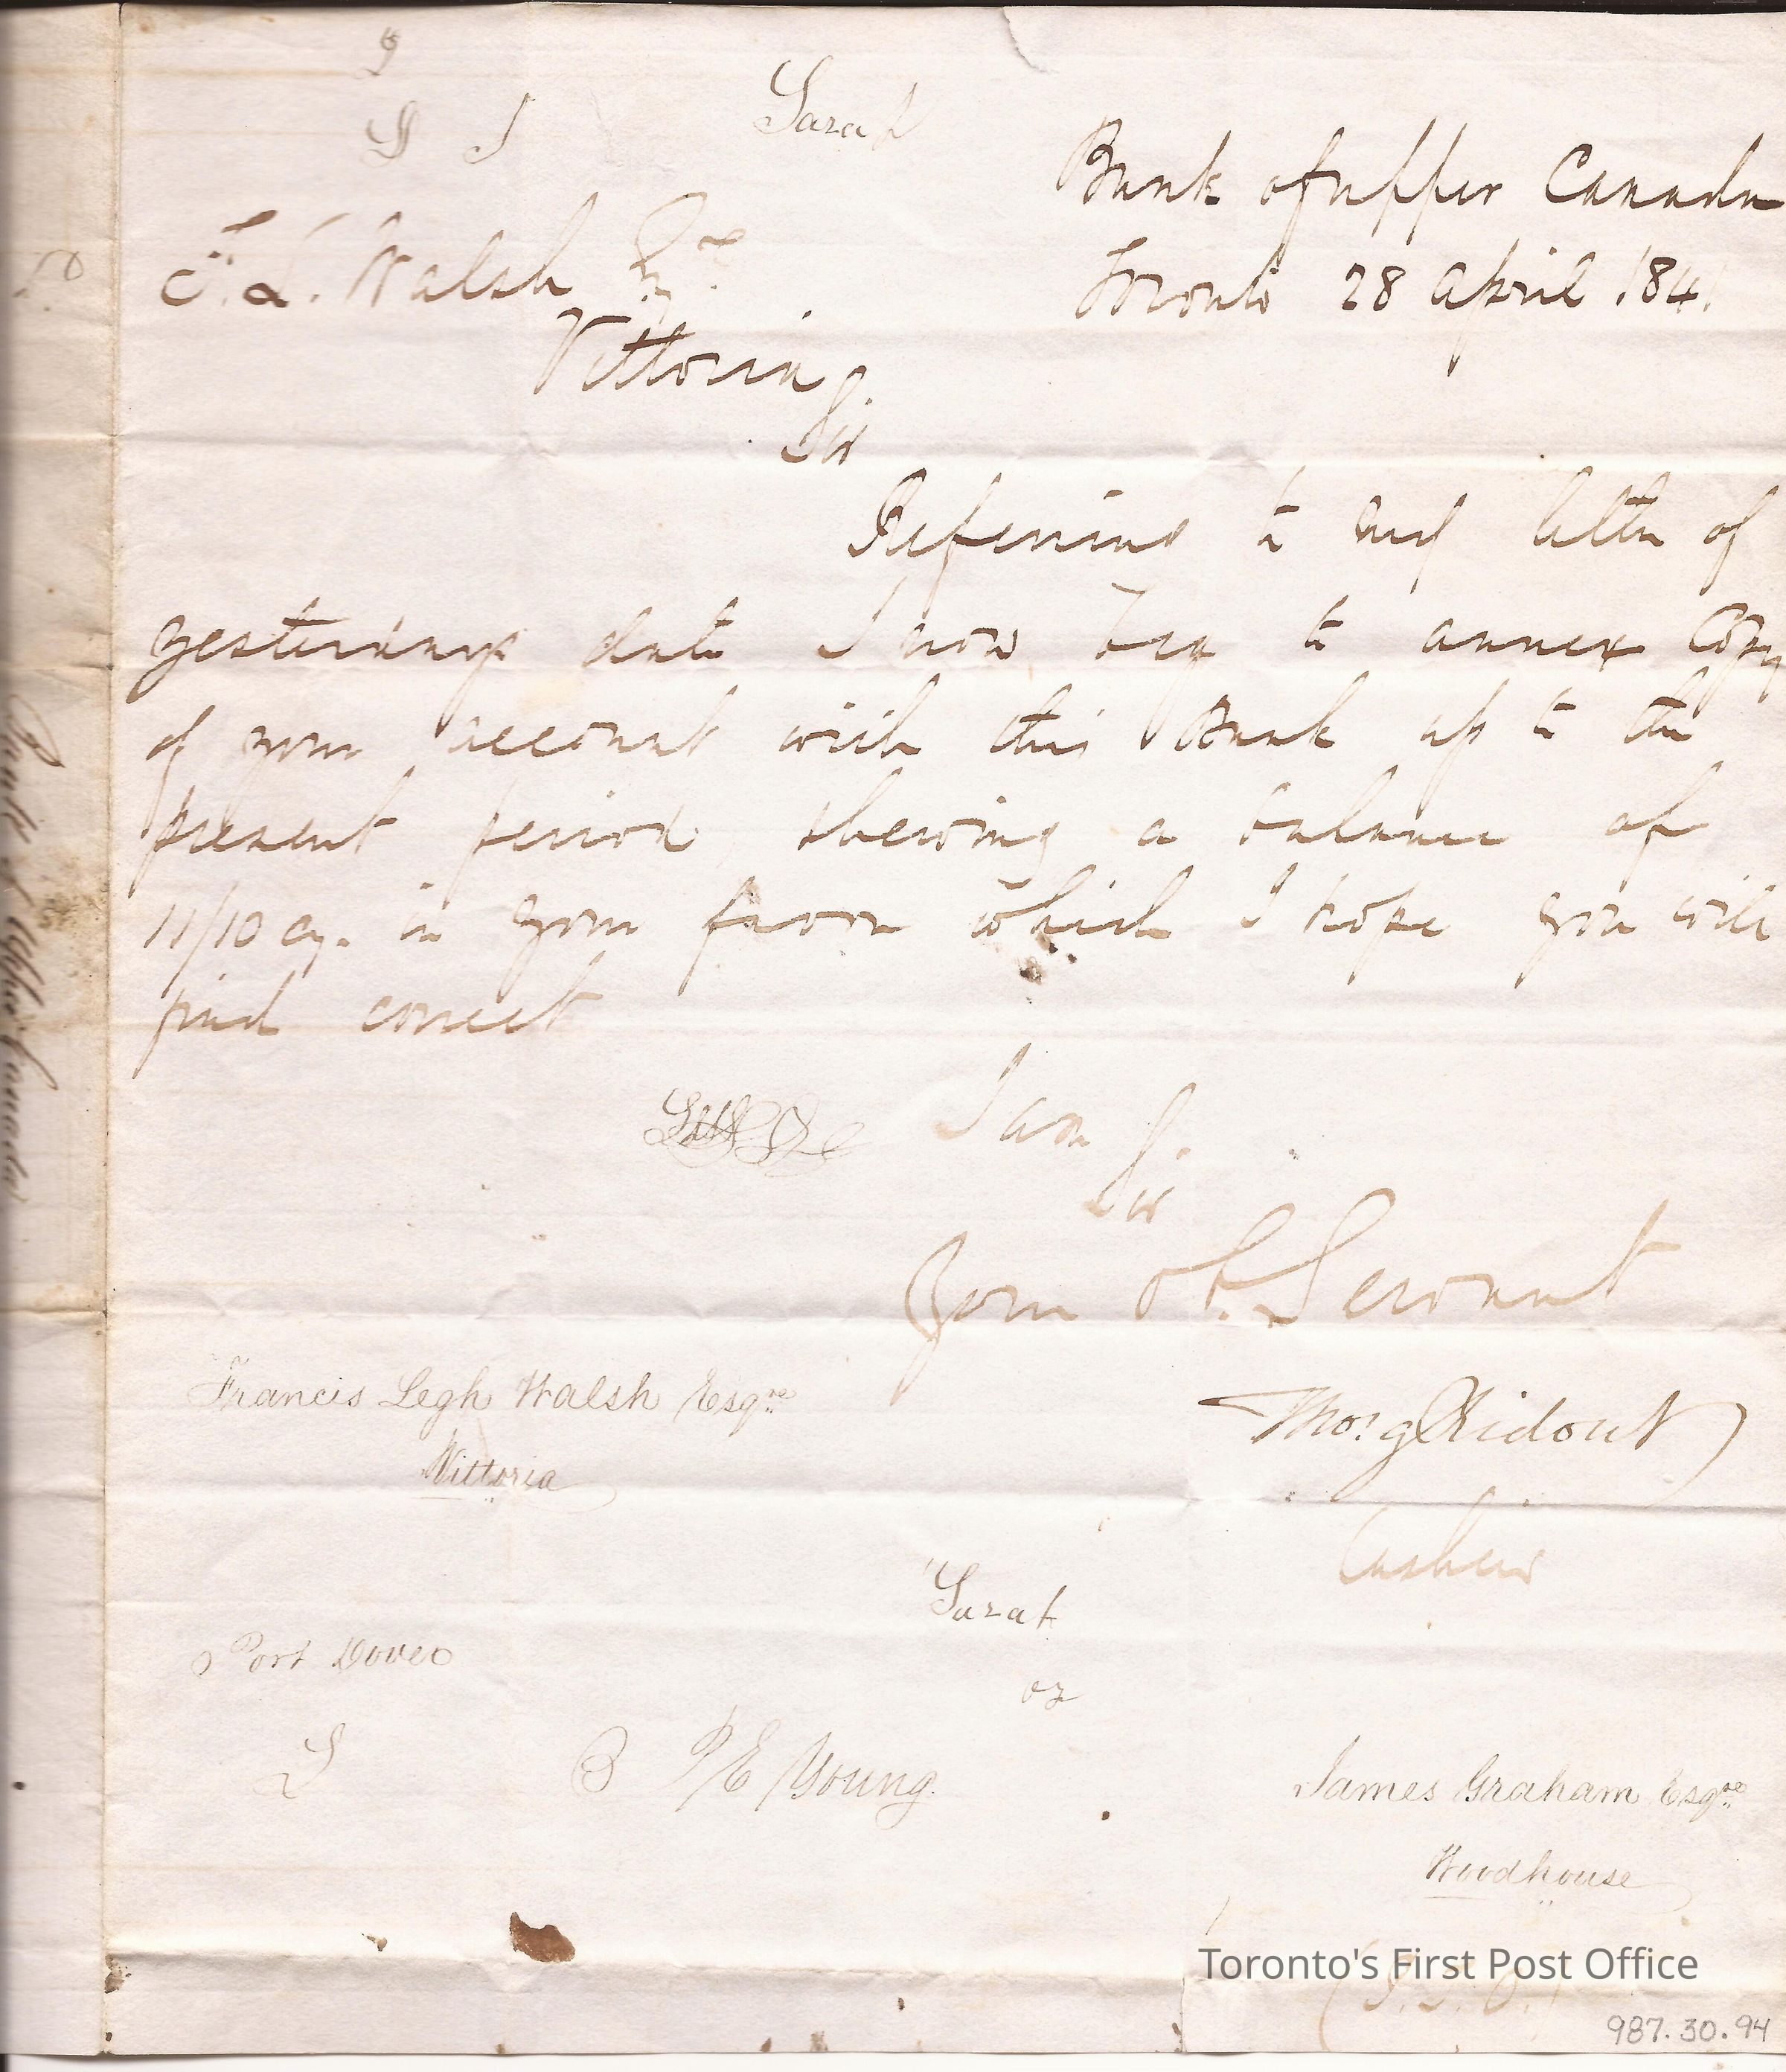 S J
Sarah
Bank of upper Canada
Toronto 28 April 1841
F. L. Walsh Esqre
Vittoria
Sir
Referring to my letter of
yesterdays date I now beg to annex Copy
of your account with this Bank up to the
present period shewing a balance of
11/10 cy. in your favor which I hope you will
find correct
I am
Sir
Your ob. Servant
Thos. g Ridout
Cashier
Francis Legh Walsh Esqre
Vittoria
Sarah
or
Port Dover
S
B P E Young
James Graham Esqre
Woodhouse
Toronto's First Post Office
987.30.94